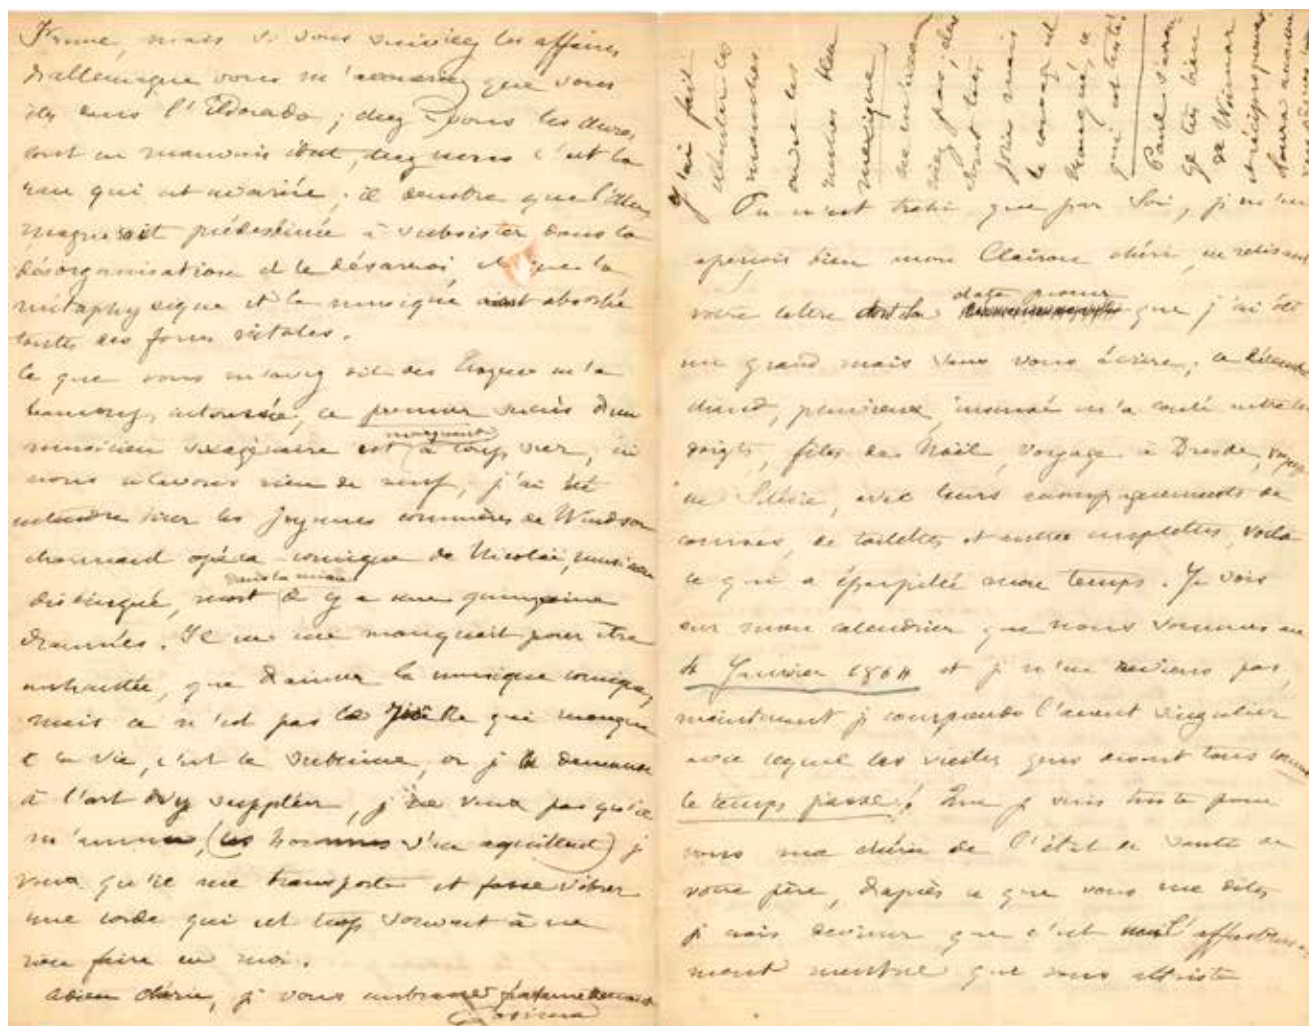 France, mais si vous voyiez les affaires
d'allemagne vous m'avoueriez que vous
êtes dans l'Eldorado; chez vous les choses
sont en mauvais état, chez nous c'est la
qui est avariée. il semble que l'Alle
magne soit prédestinée à subsister dans la
désorganisation et le désarroi, et que la
métaphysique et la musique aient absorbé
toutes ses forces vitales.
Ce que vous m'avez dit des Troyens m'a
beaucoup intéressée, ce premier succès d'un
musicien sexagénaire est à coup sûr, ici
nous n'avons rien de neuf, j'ai été
entendre hier les Joyeuses commères de Windsor
charmant opéra comique de Nicolaï, musicien
distingué, mort il y a une quinzaine
d'années. Il ne me manquait pour être
enchantée, que d'aimer la musique comique,
mais ce n'est pas le qui manque
à la vie, c'est le sublime, or je le demande
à l'art d'y suppléer, je ne veux pas qu'il
m'amuse, (les hommes s'en acquittent) je
veux qu'il me transporte et fasse vibrer
une corde qui est trop souvent à ne
rien faire en moi.
Adieu chérie, je vous embrasse
Cosima
J'ai fait
les
manches
avec les
musique
ne m'en
pas, elles
sont très
jolies mais
le courage
manqué, ce
qui est triste!
Paul
ge très bien
de Weimar
et réciproquement
On n'est trahi que par Soi, je m'en
aperçois bien mon Clairon chéri, en relisant
votre lettre dont la date prouve que j'ai été
un grand mois sans vous écrire; ce Décembre
chaud, pluvieux, insensé m'a coulé entre les
doigts, fêtes de Noël, voyage à Dresde, voyage
en Silésie, avec leurs accompagnements de
courses, de toilettes et autres emplettes, voilà
ce qui a éparpillé mon temps. Je vois
sur mon calendrier que nous sommes au
4 Janvier 1864 et je n'en reviens pas,
maintenant je comprends l'accent singulier
avec lequel les vieilles gens disent tous comme
le temps passe! Que je suis triste pour
vous ma chérie de l'état de santé de
votre père, d'après ce que vous me dites
je crois deviner que c'est
ment mental que vous attriste